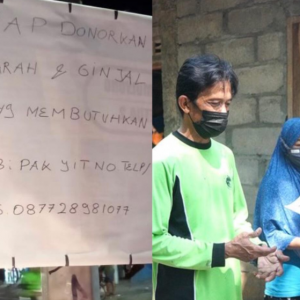 AP DONORKAN
ARAH & GINJAL
NG MEMBUTUHKAN
B: PAK YITNO TELP/
S. 087728981077